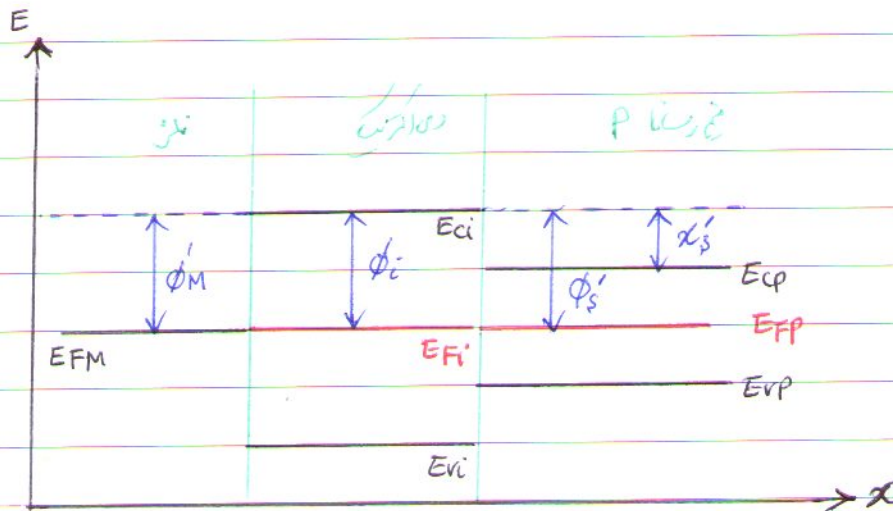 E
فلز دی الکتریک نیم رسانا P
Eci
χ's
φ'M φi φ's
Ecp
EFM EFi EFp
Evp
Evi
x